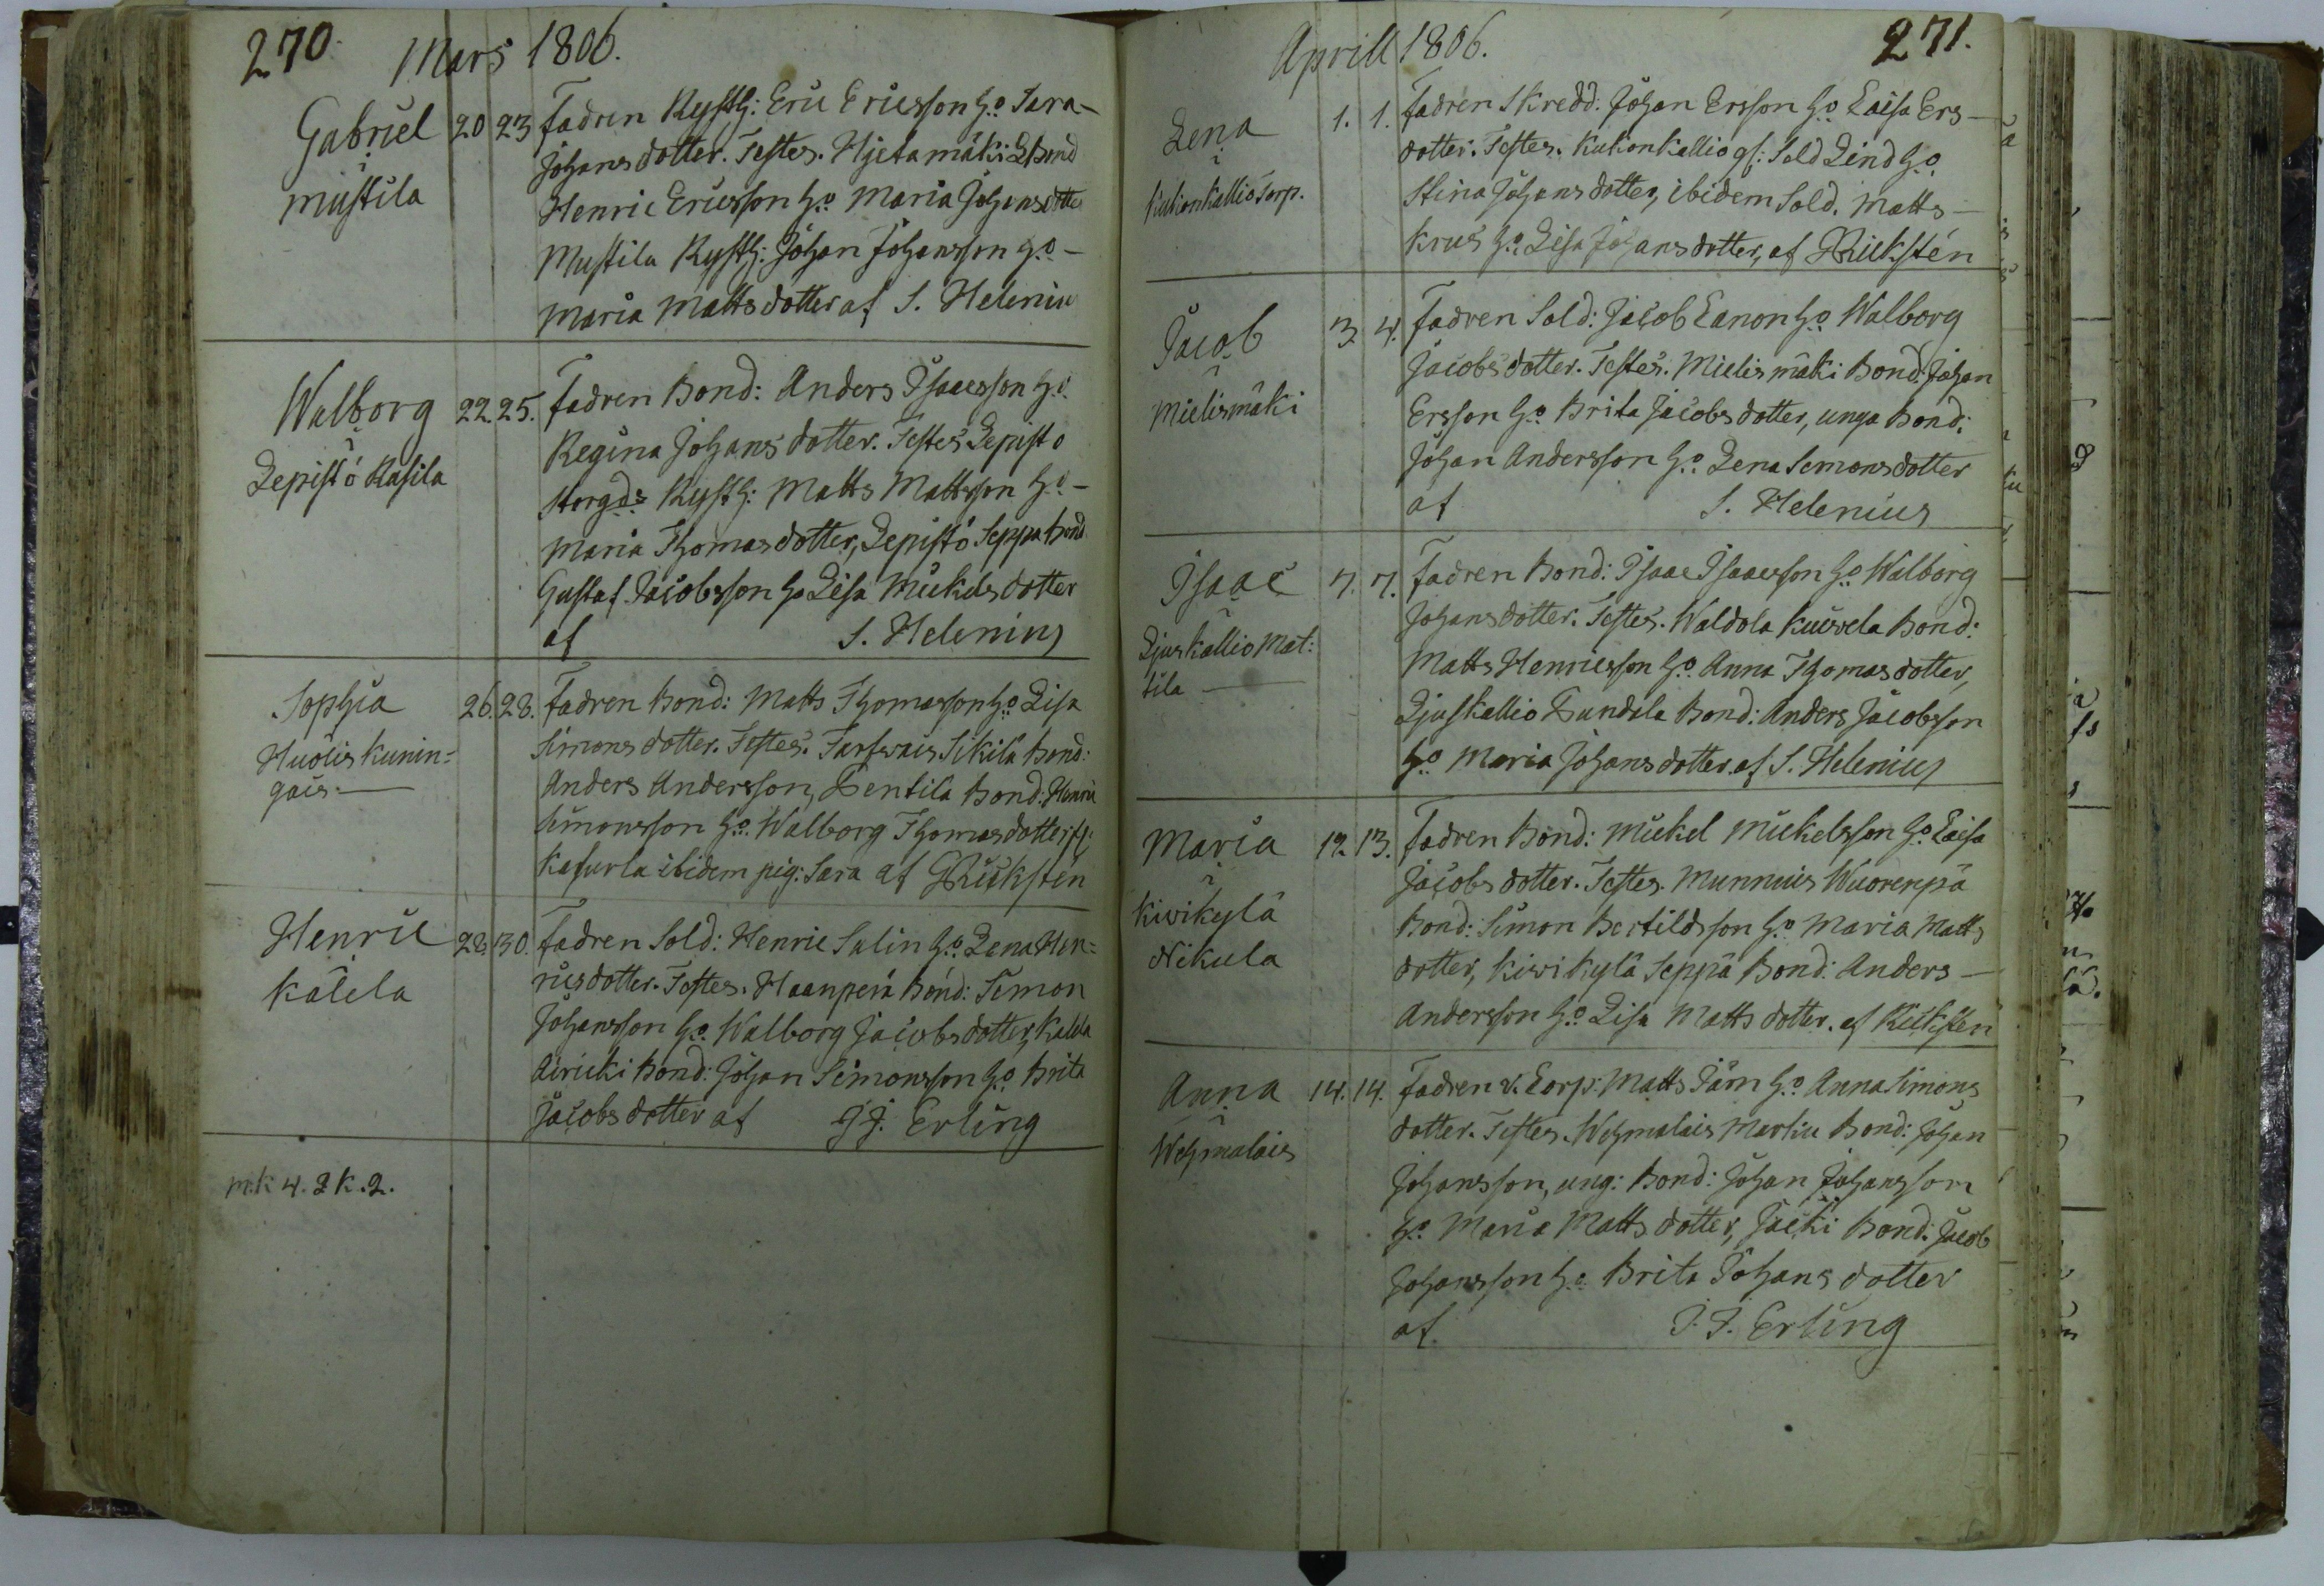 270.
Mars 1806.
Gabriel
i
mustila
20 23 Fadren Rysth: Eric Ericsson h:o Sara-
Johansdotter. Testes. Hjetamäki Bond
Henric Ericsson h:o Maria Johansdotter
Mustila Rysth: Johan Johansson h:o -
Maria Mattsdotter af S. Heleniu
Walborg
i
Lepistö Kasila
22. 25. Fadren Bond: Anders Isaacsson h:o
Regina Johansdotter. Testes Lepistö
storgds Rysth: Matts Mattsson h:o -
Maria Thomasdotter, Lepistö Seppä Bond
Gustaf Jacobsson h:o Lisa Mickelsdotter
af S. Helenius
Sophia
Huolis Kunin=
gais
26. 28. Fadren Bond: Matts Thomasson h:o Lisa
Simonsdotter. Testes. Sikilä Bond:
Anders Andersson, Pentilä Bond: Henric
Simonsson h:o Walborg Thomasdotter,
ibidem pig: Sara af Rickstén
Henric
Kalela
28. 30. Fadren Sold: Henric Salin h:o Lena Hen=
ricsdotter. Testes. Haanperä Bond: Simon
Johansson h:o Walborg Jacobsdotter, Kalela
Airicki Bond: Johan Simonsson h:o Brita
Jacobsdotter af J. J. Erling
m.k 4. q k. 2.
Aprill 1806.
271.
Lena
i
Kukonkallio Torp.
1. 1. Fadren Skredd. Johan Ersson h:o Caisa Ers-
dotter. Testes. Kukonkallio Sold Lind h:o
Stina Johansdotter, ibidem Sold. Matts-
Krus h:o Lisa Johansdotter, af Rickstén
Jacob
i
Mielismäki
3. 4. Fadren Sold: Jacob Canon h:o Walborg
Jacobsdotter. Testes. Mielismäki Bond: Johan
Ersson h:o Brita Jacobsdotter, unga Bond:
Johan Andersson h:o Lena Simonsdotter
af S. Helenius
Isaac
i
Ljuskallio Mat:
tila
7. 7. Fadren Bond: Isaac Isaacsson h:o Walborg
Johansdotter. Testes. Waldola Kuivela Bond:
Matts Henricsson h:o Anna Thomasdotter,
Ljuskallio Pundola Bond: Anders Jacobsson
h:o Maria Johansdotter af S. Helenius
Maria
i
Kivikylä
Nikula
12. 13. Fadren Bond: Mickel Mickelsson h:o Caisa
Jacobsdotter. Testes. Munnuis Wuorenpä
Bond: Simon Bertilsson h:o Maria Matts
dotter, Kivikylä Seppä Bond: Anders-
Andersson h:o Lisa Mattsdotter. af Rickstén
Anna
i
Wehmalais
14. 14. Fadren v. Corp: Matts Järn h:o Anna Simons
dotter. Testes. Wehmalais Marku Bond: Johan
Johansson, ung: Bond: Johan Johansson
h:o Maria Mattsdotter, Jäcki Bond: Jacob
Johansson h:o Brita Johansdotter
af. J. J. Erling